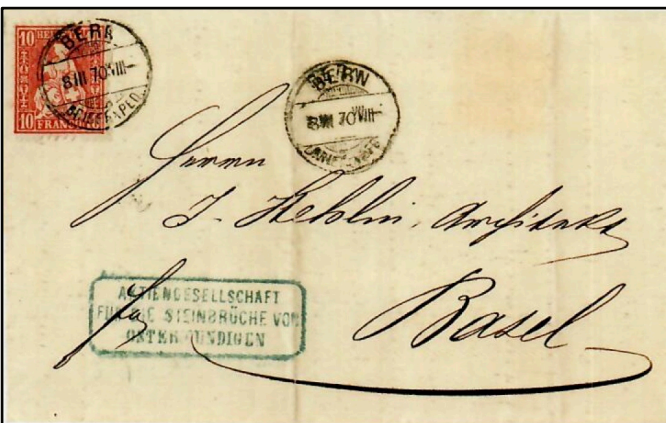 10 HELVETIA
10
FRANCO
BERN
8 III 70 VIII-
BRIEFEXPED.
BERN
8 III 70 VIII-
BRIEFEXPED.
Herrn
J. Architekt
Basel
ACTIENGESELLSCHAFT
FÜR DIE STEINBRÜCHE VON
OSTERMUNDIGEN